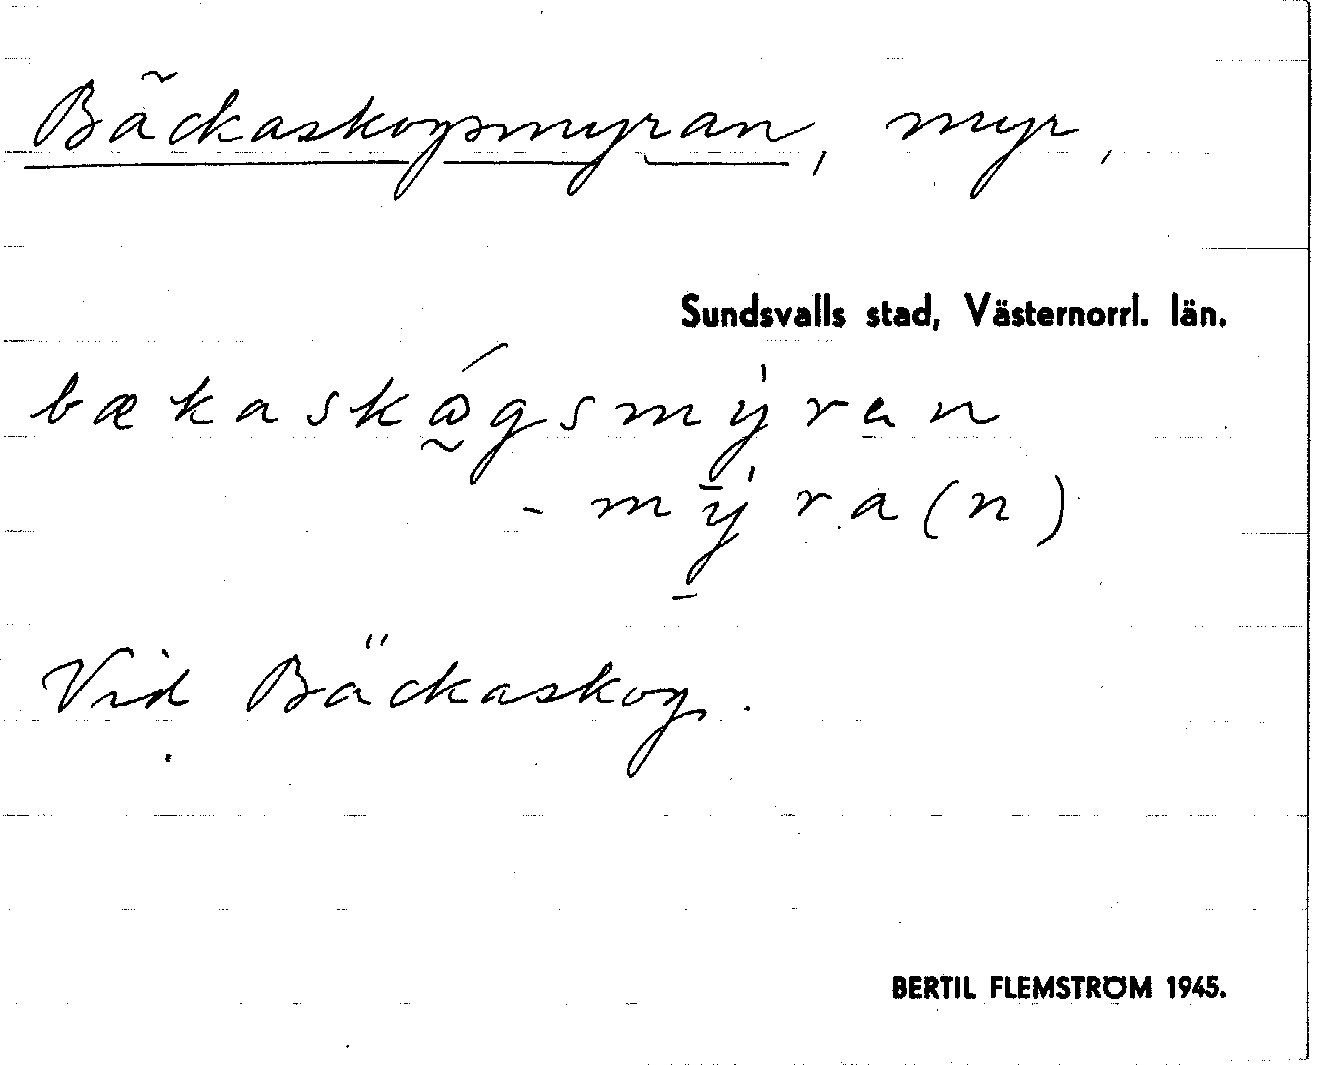 Bäckaskogsmyran, myr,
Sundsvalls stad, Västernorrl. län.
bækaskågsmyran
- myra(n)
Vid Bäckaskog.
BERTIL FLEMSTRÖM 1945.